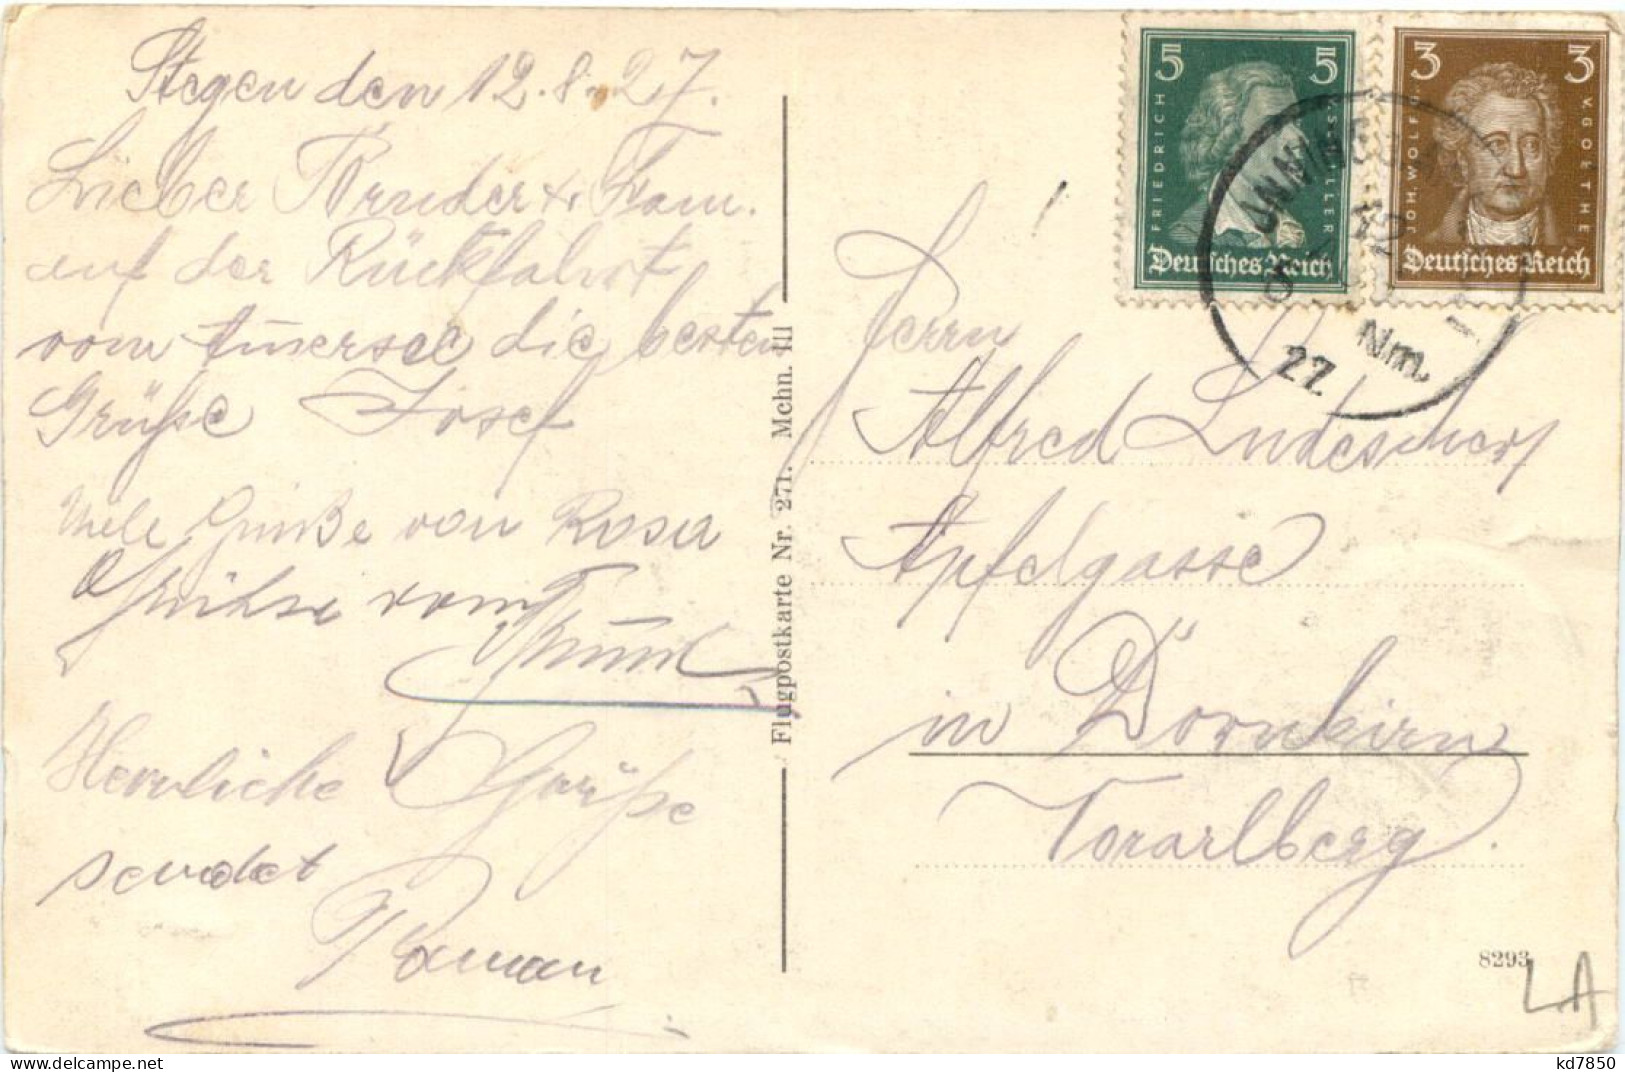 Stegen den 12.8.27.
Lieber Bruder & Fam.
auf der Rückfahrt
vom Ammersee die besten
Grüße Josef
Viele Grüße von Rosa
Grüße vom
Herrliche Grüße
sendet
Roman
Flugpostkarte Nr. 271. Mchn. III
5 5
FRIEDRICH
V. SCHILLER
Deutsches Reich
3 3
JOH. WOLFG.
V. GOETHE
Deutsches Reich
12
Nm.
27
Herrn
Alfred Ludescher
Apfelgasse
in Dornbirn
Vorarlberg.
8293
LA
delcampe.net
kd7850